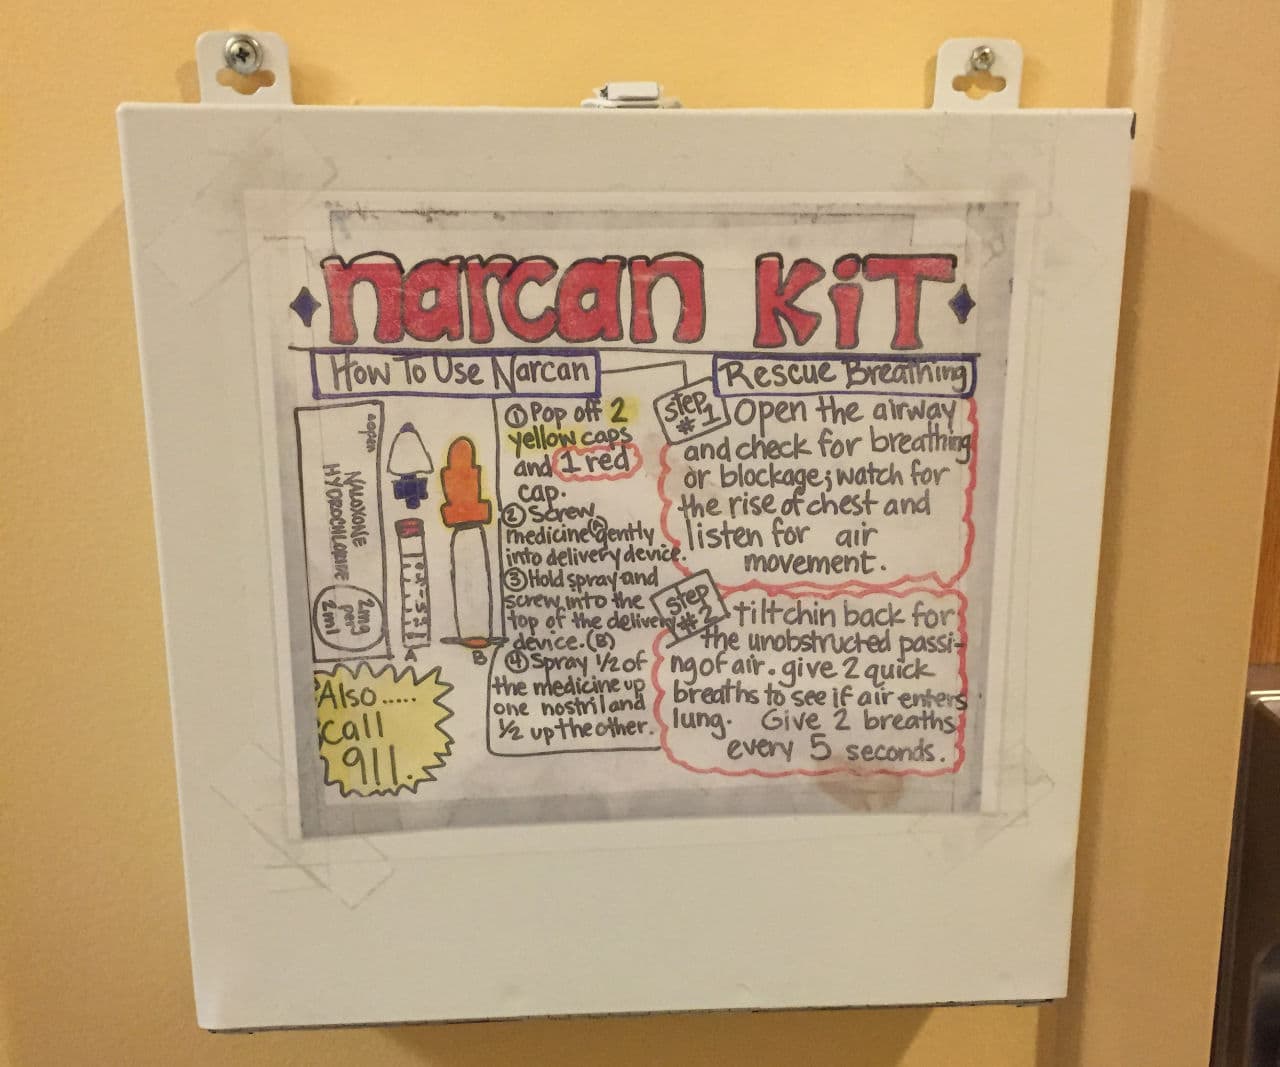 narcan KiT
How To Use Narcan
① Pop off 2
yellow caps
and 1 red
cap.
② Screw
medicine (A) gently
into delivery device.
③ Hold spray and
screw into the
top of the delivery
device. (B)
④ Spray 1/2 of
the medicine up
one nostril and
1/2 up the other.
NALOXONE
HYDROCHLORIDE
2mg
per
2ml
A
B
Also.....
call
911.
Rescue Breathing
Step
#1
Open the airway
and check for breathing
or blockage; watch for
the rise of chest and
listen for air
movement.
Step
#2
tilt chin back for
the unobstructed passi-
ng of air. give 2 quick
breaths to see if air enters
lung. Give 2 breaths
every 5 seconds.